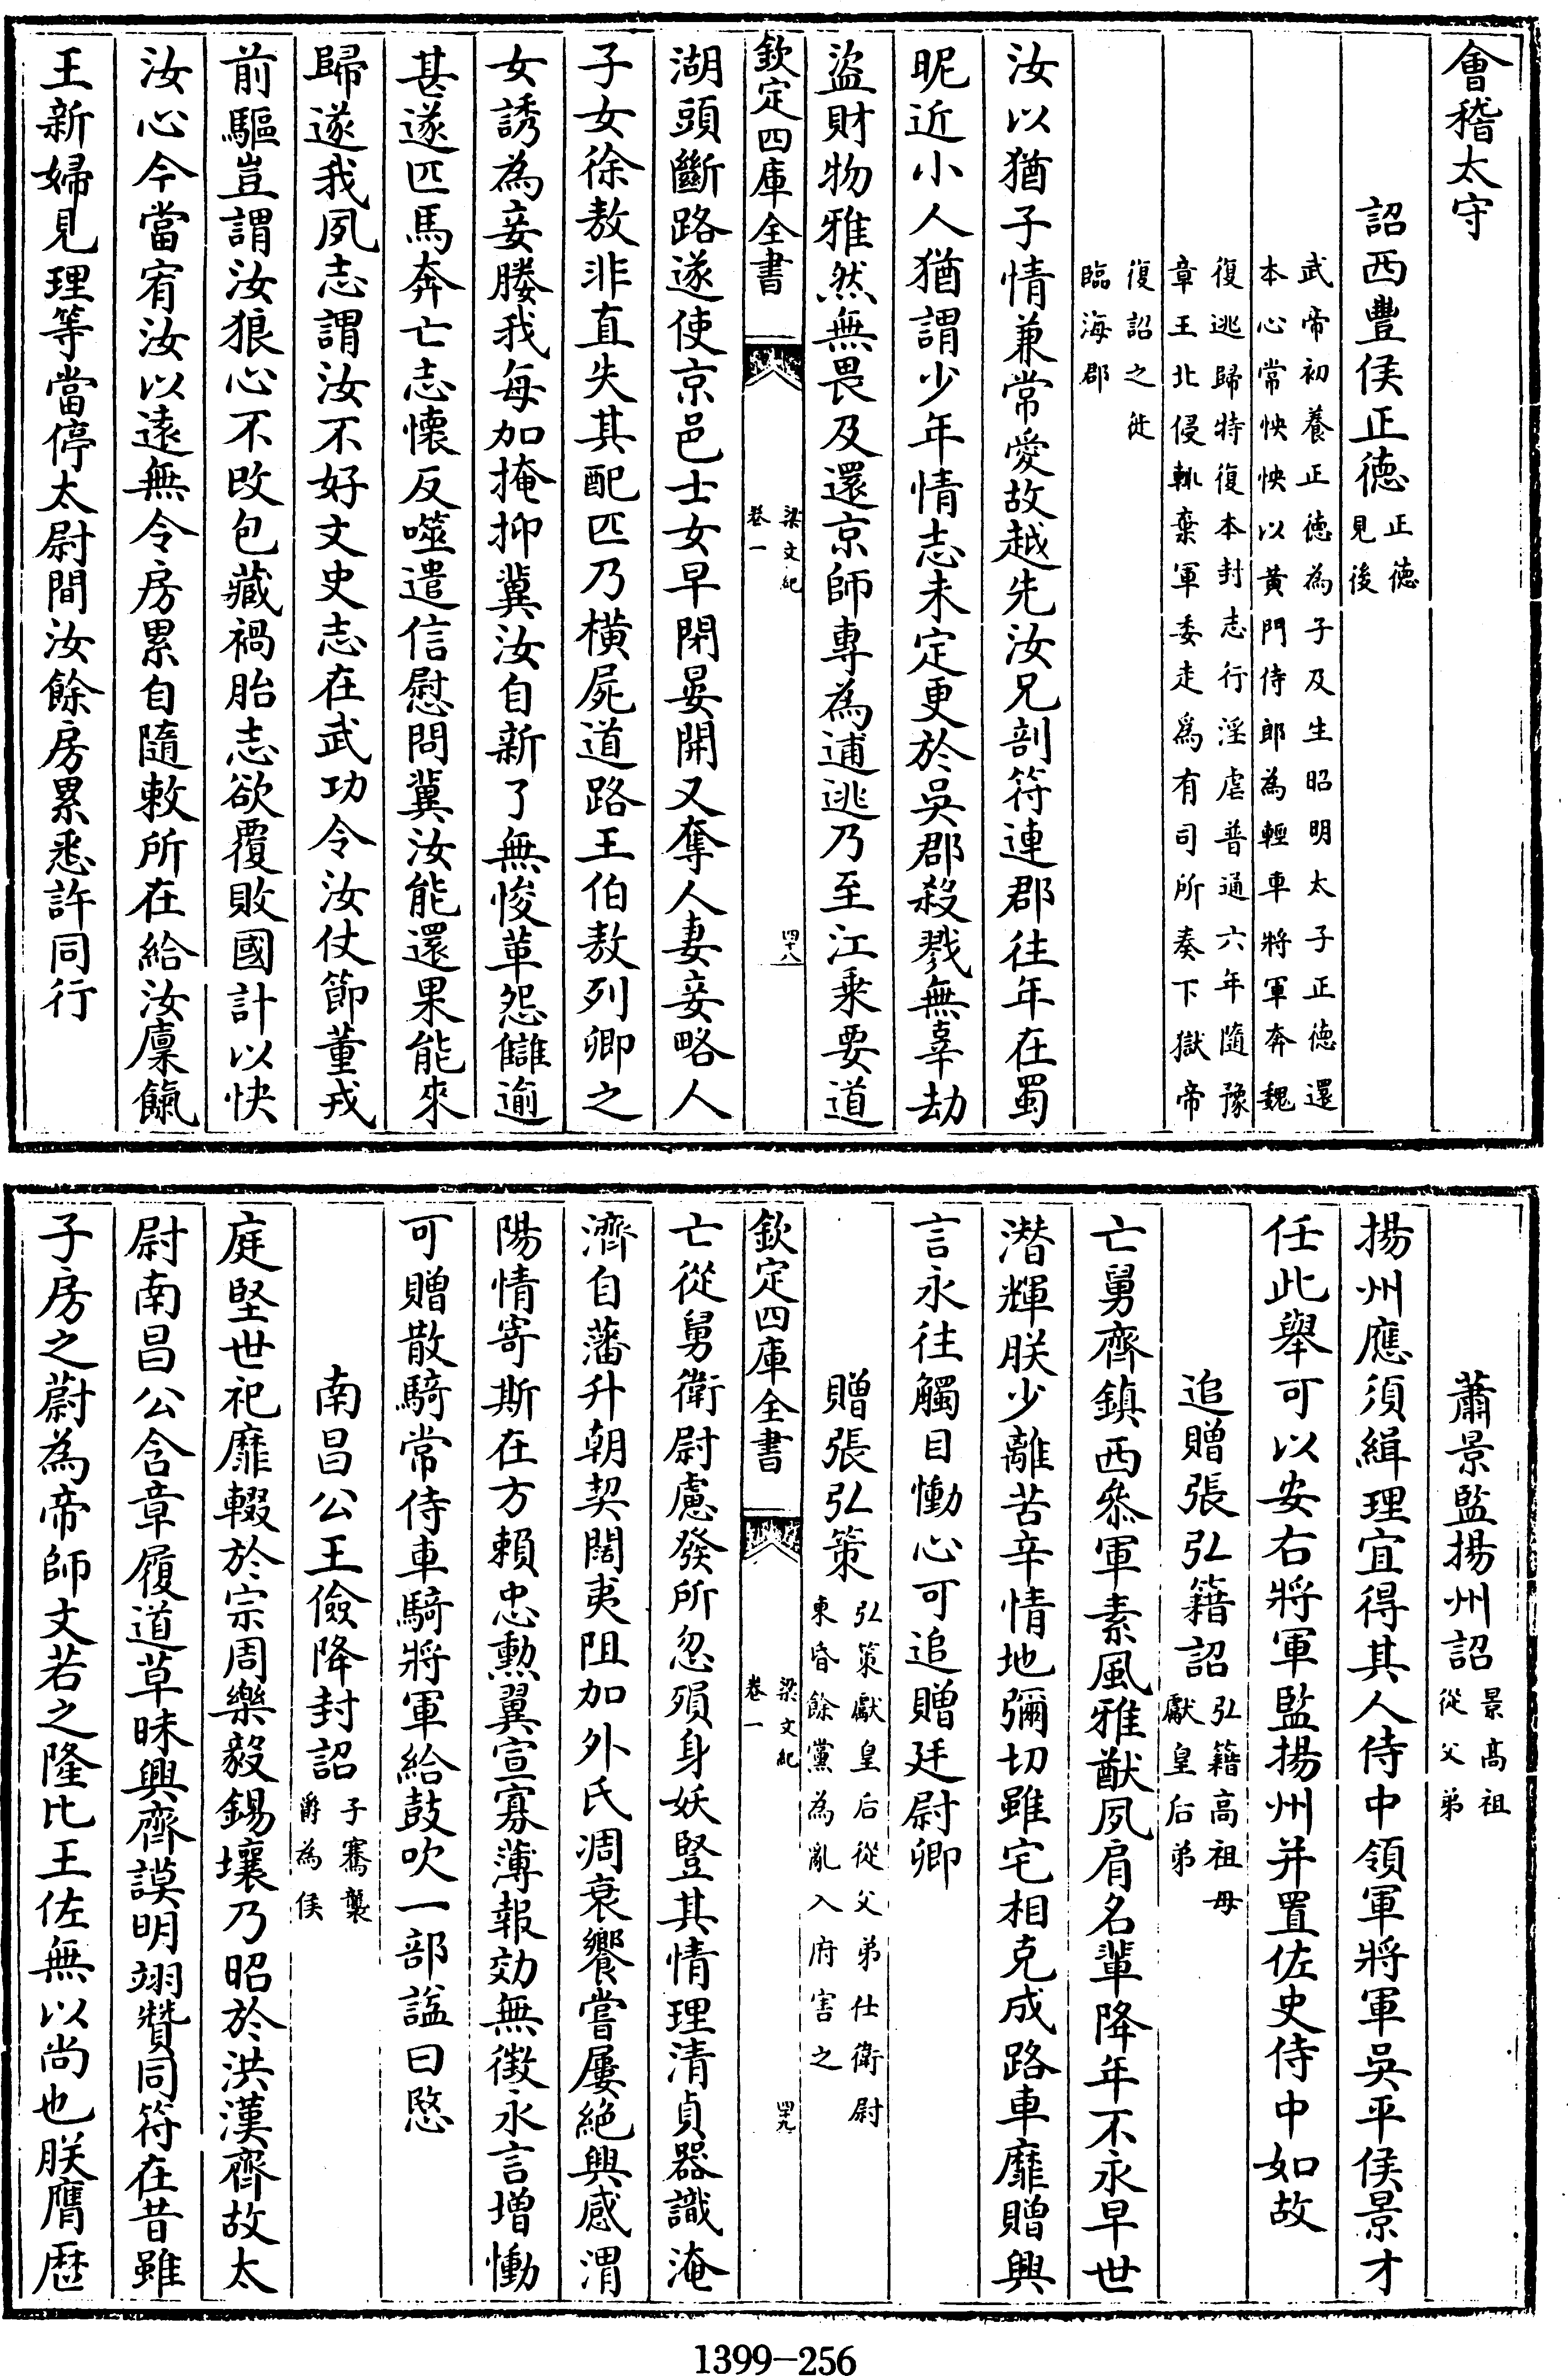 會稽太守
詔西豐侯正德正德見後
武帝初養正德為子及生昭明太子正德還
本心常怏怏以黃門侍郎為輕車將軍奔魏
復逃歸特復本封志行淫虐普通六年隨豫
章王北侵輒棄軍委走為有司所奏下獄帝
復詔之徙
臨海郡
汝以猶子情兼常愛故越先汝兄剖符連郡往年在蜀
昵近小人猶謂少年情志未定更於吳郡殺戮無辜劫
盜財物雅然無畏及還京師專為逋逃乃至江乗要道
欽定四庫全書
梁文紀
卷一
四十八
湖頭斷路遂使京邑士女早閉晏開又奪人妻妾略人
子女徐敖非直失其配匹乃橫屍道路王伯敖列卿之
女誘為妾媵我每加掩抑冀汝自新了無悛革怨讎逾
甚遂匹馬奔亡志懷反噬遣信慰問冀汝能還果能來
歸遂我夙志謂汝不好文史志在武功令汝仗節董戎
前驅豈謂汝狼心不改包藏禍胎志欲覆敗國計以快
汝心今當宥汝以遠無令房累自隨敕所在給汝廩餼
王新婦見理等當停太尉間汝餘房累悉許同行
蕭景監揚州詔景高祖從父弟
揚州應須緝理宜得其人侍中領軍將軍吳平侯景才
任此舉可以安右將軍監揚州并置佐史侍中如故
追贈張弘籍詔弘籍高祖母獻皇后弟
亡舅齊鎮西叅軍素風雅猷夙肩名輩降年不永早世
潛輝朕少離苦辛情地彌切雖宅相克成路車靡贈興
言永往觸目慟心可追贈廷尉卿
贈張弘策弘策獻皇后從父弟仕衛尉東昏餘黨為亂入府害之
欽定四庫全書
梁文紀
卷一
四十九
亡從舅衛尉慮發所忽殞身妖豎其情理清貞器識淹
濟自藩升朝契闊夷阻加外氏凋衰饗嘗屢絕興感渭
陽情寄斯在方賴忠勳翼宣寡薄報効無徵永言增慟
可贈散騎常侍車騎將軍給鼓吹一部諡曰愍
南昌公王儉降封詔子騫襲爵為侯
庭堅世祀靡輟於宗周樂毅錫壤乃昭於洪漢齊故太
尉南昌公含章履道草昧興齊謨明翊贊同符在昔雖
子房之蔚為帝師文若之隆比王佐無以尚也朕膺歴
1399-256